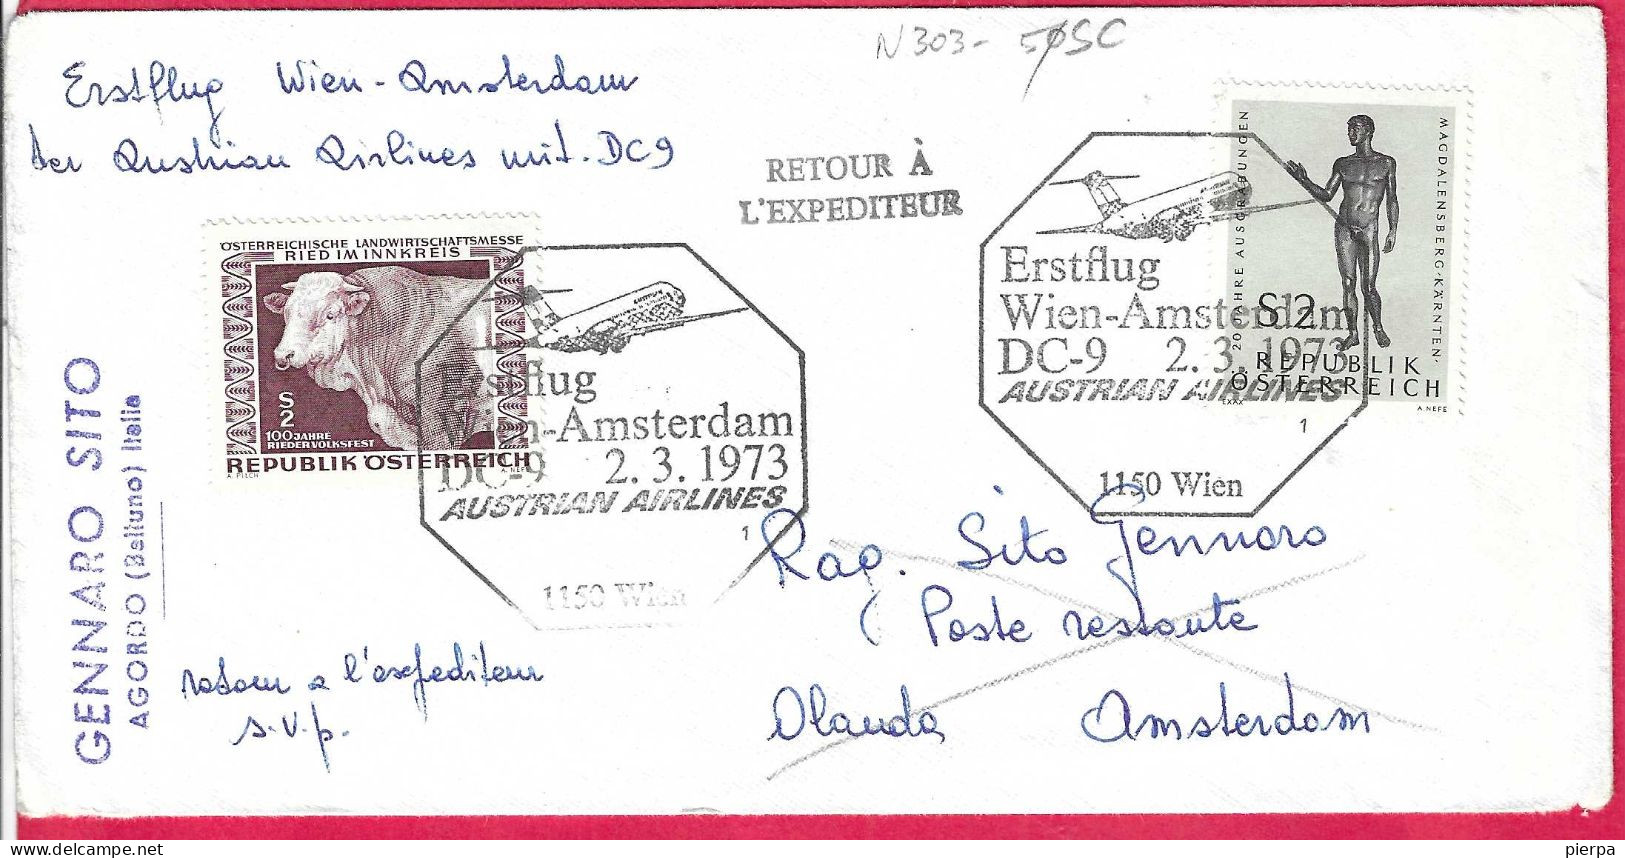 N 303-
Erstflug Wien-Amsterdam
der Austrian Airlines mit DC9
RETOUR À
L'EXPEDITEUR
Erstflug
Wien-Amsterdam
DC-9 2.3.1973
AUSTRIAN AIRLINES
1
1150 Wien
20 JAHRE AUSGRABUNGEN
MAGDALENSBERG·KÄRNTEN·
S2
REPUBLIK
ÖSTERREICH
EXAX
A. NEFE
ÖSTERREICHISCHE LANDWIRTSCHAFTSMESSE
RIED IM INNKREIS
S
2
100 JAHRE
RIEDER VOLKSFEST
REPUBLIK ÖSTERREICH
A. PILCH
A. NEFE
Erstflug
Wien-Amsterdam
DC-9 2.3.1973
AUSTRIAN AIRLINES
1
1150 Wien
GENNARO SITO
AGORDO (Belluno) Italia
Rag. Sito Gennaro
Poste restante
Olanda Amsterdam
retour a l'expediteur
s.v.p.
pierpa